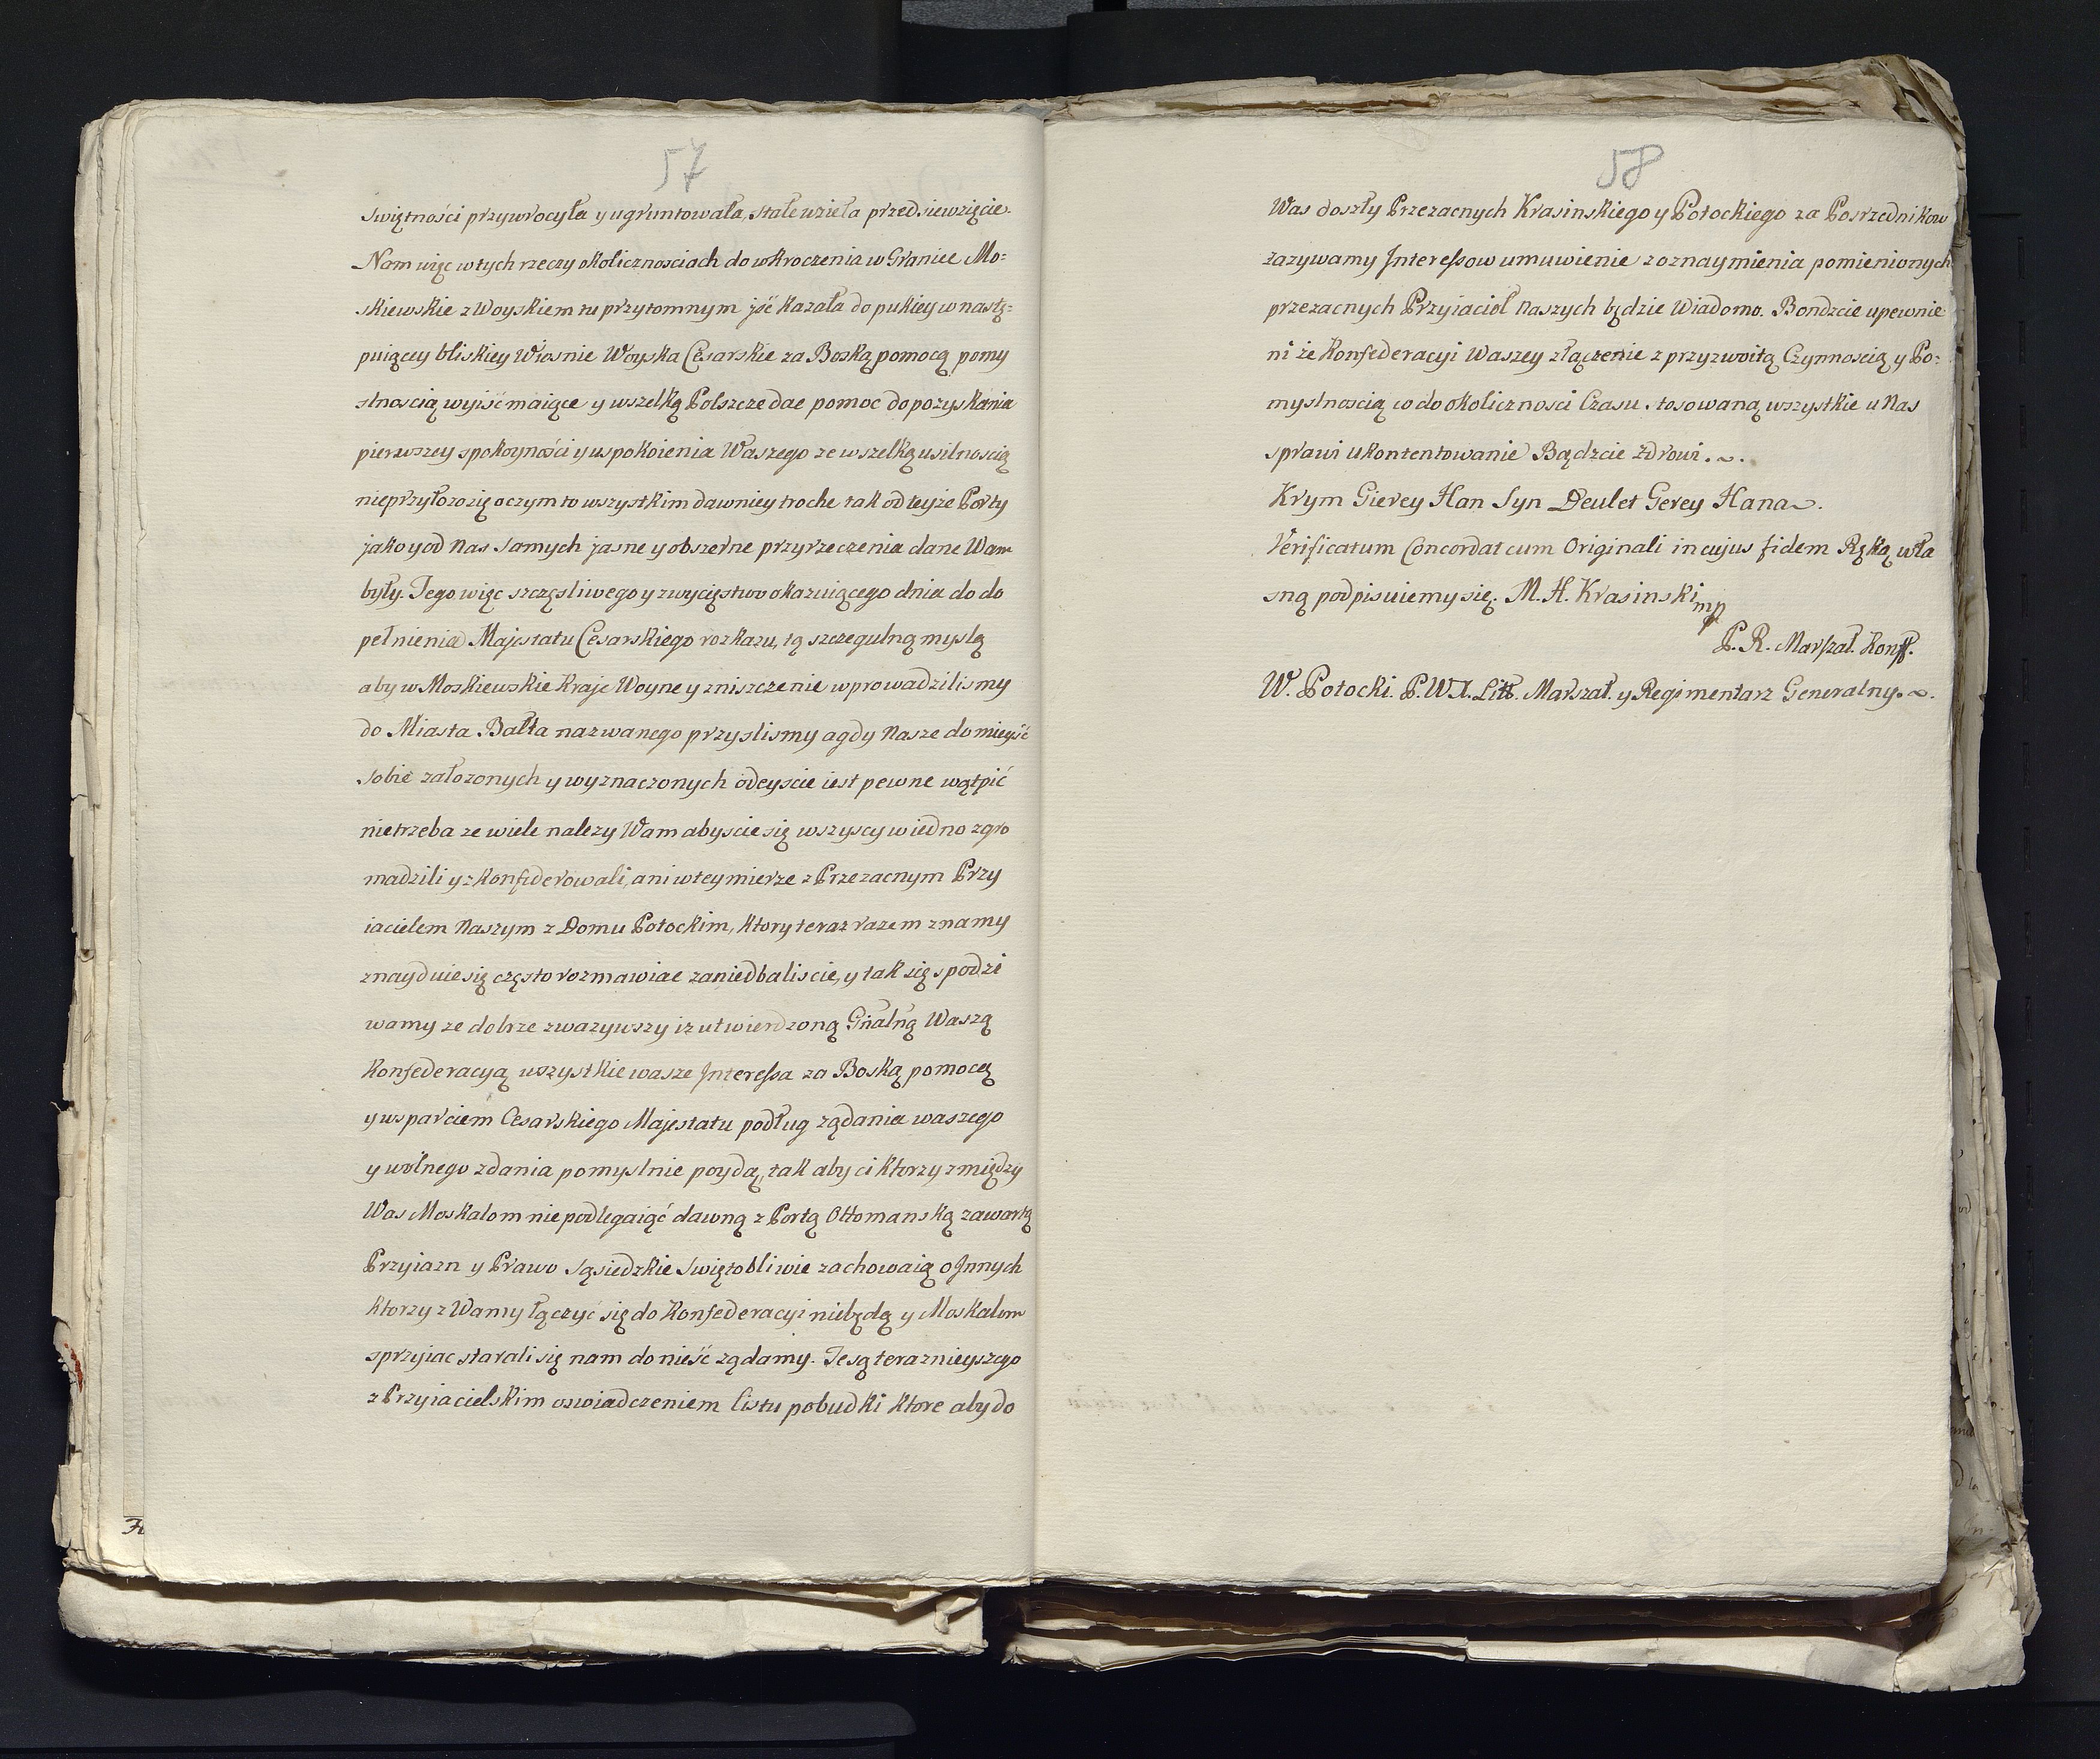 57
swiętności przywrocyła y ugruntowała, stałe wzieła przedsiewzięcie.
Nam więc w tych rzeczy okolicznosciach do wkroczenia w Granice Mo=
skiewskie z Woyskiem tu przytomnym jść kazała do pukiey w nastę=
puiącey bliskiey Wiosnie Woyska Cesarskie za Boską pomocą pomy
slnoscią wyiść maiące y wszelką Polszcze dac pomoc do pozyskania
pierwszey spokoyności y uspokoienia Waszego ze wszelką usilnoscią
nieprzyłozo się oczym to wszystkim dawniey troche tak od teyże Porty
jako y od Nas samych jasne y obszerne przyrzeczenia dane Wam
były. Tego więc szczęsliwego y zwycięstwo okazuiącego dnia do do
pełnienia Majestatu Cesarskiego rozkazu, tą szczegulną myslą
aby w Moskiewskie Kraje Woyne y zniszczenie wprowadzilismy
do Miasta Bałta nazwanego przyslismy a gdy Nasze do mieyść
sobie załozonych y wyznaczonych odeyscie iest pewne wątpić
nietrzeba ze wiele nalezy Wam abyscie się wszyscy wiedno zgro
madzili y zkonfederowali, ani wtey mierze z Przezacnym Przy
iacielem Naszym z Domu Potockim, ktory teraz razem znamy
znayduie się często rozmawiac zaniedbaliscie, y tak się spodzi
wamy ze dobrze zwazywszy iz utwierdzoną Gnalną Waszą
Konfederacyą wszystkie wasze Interessa za Boską pomocą
y wsparciem Cesarskiego Majestatu podług ządania waszego
y wolnego zdania pomyslnie poydą, tak aby ci ktorzy z między
Was Moskalom nie podlegaiąć dawną z Portą Ottomanską zawartą
Przyiazn y Prawo Sąsiedzkie Swiętobliwie zachowaią o Innych
ktorzy z Wamy łączyć się do Konfederacyi niebędą y Moskalom
sprzyiac starali się nam donieść ządamy. Te są teraznieyszego
z Przyiacielskim oswiadczeniem listu pobudki ktore aby do
58
Was doszły Przezacnych Krasinskiego y Potockiego za Posrzednikow
zazywamy Interessow umuwienie z oznaymienia pomienionych
przezacnych Przyiacioł Naszych będzie Wiadomo. Bondzcie upewnie=
ni że Konfederacyi Waszey złączenie z przyzwoitą Czynnoscią y Po=
myslnoscią co do okolicznosci Czasu stosowaną wszystkie u Nas
sprawi ukontentowanie Bądzcie zdrowi.
Krym Gierey Han Syn Deulet Gerey Hana.
Verificatum Concordat cum Originali in cujus fidem Ręką wła
sną podpisuiemy się. M. H. Krasinski mp
P. R. Marszał. Konff.
W. Potocki. P. W. X. Litt. Marszał. y Regimentarz Generalny.